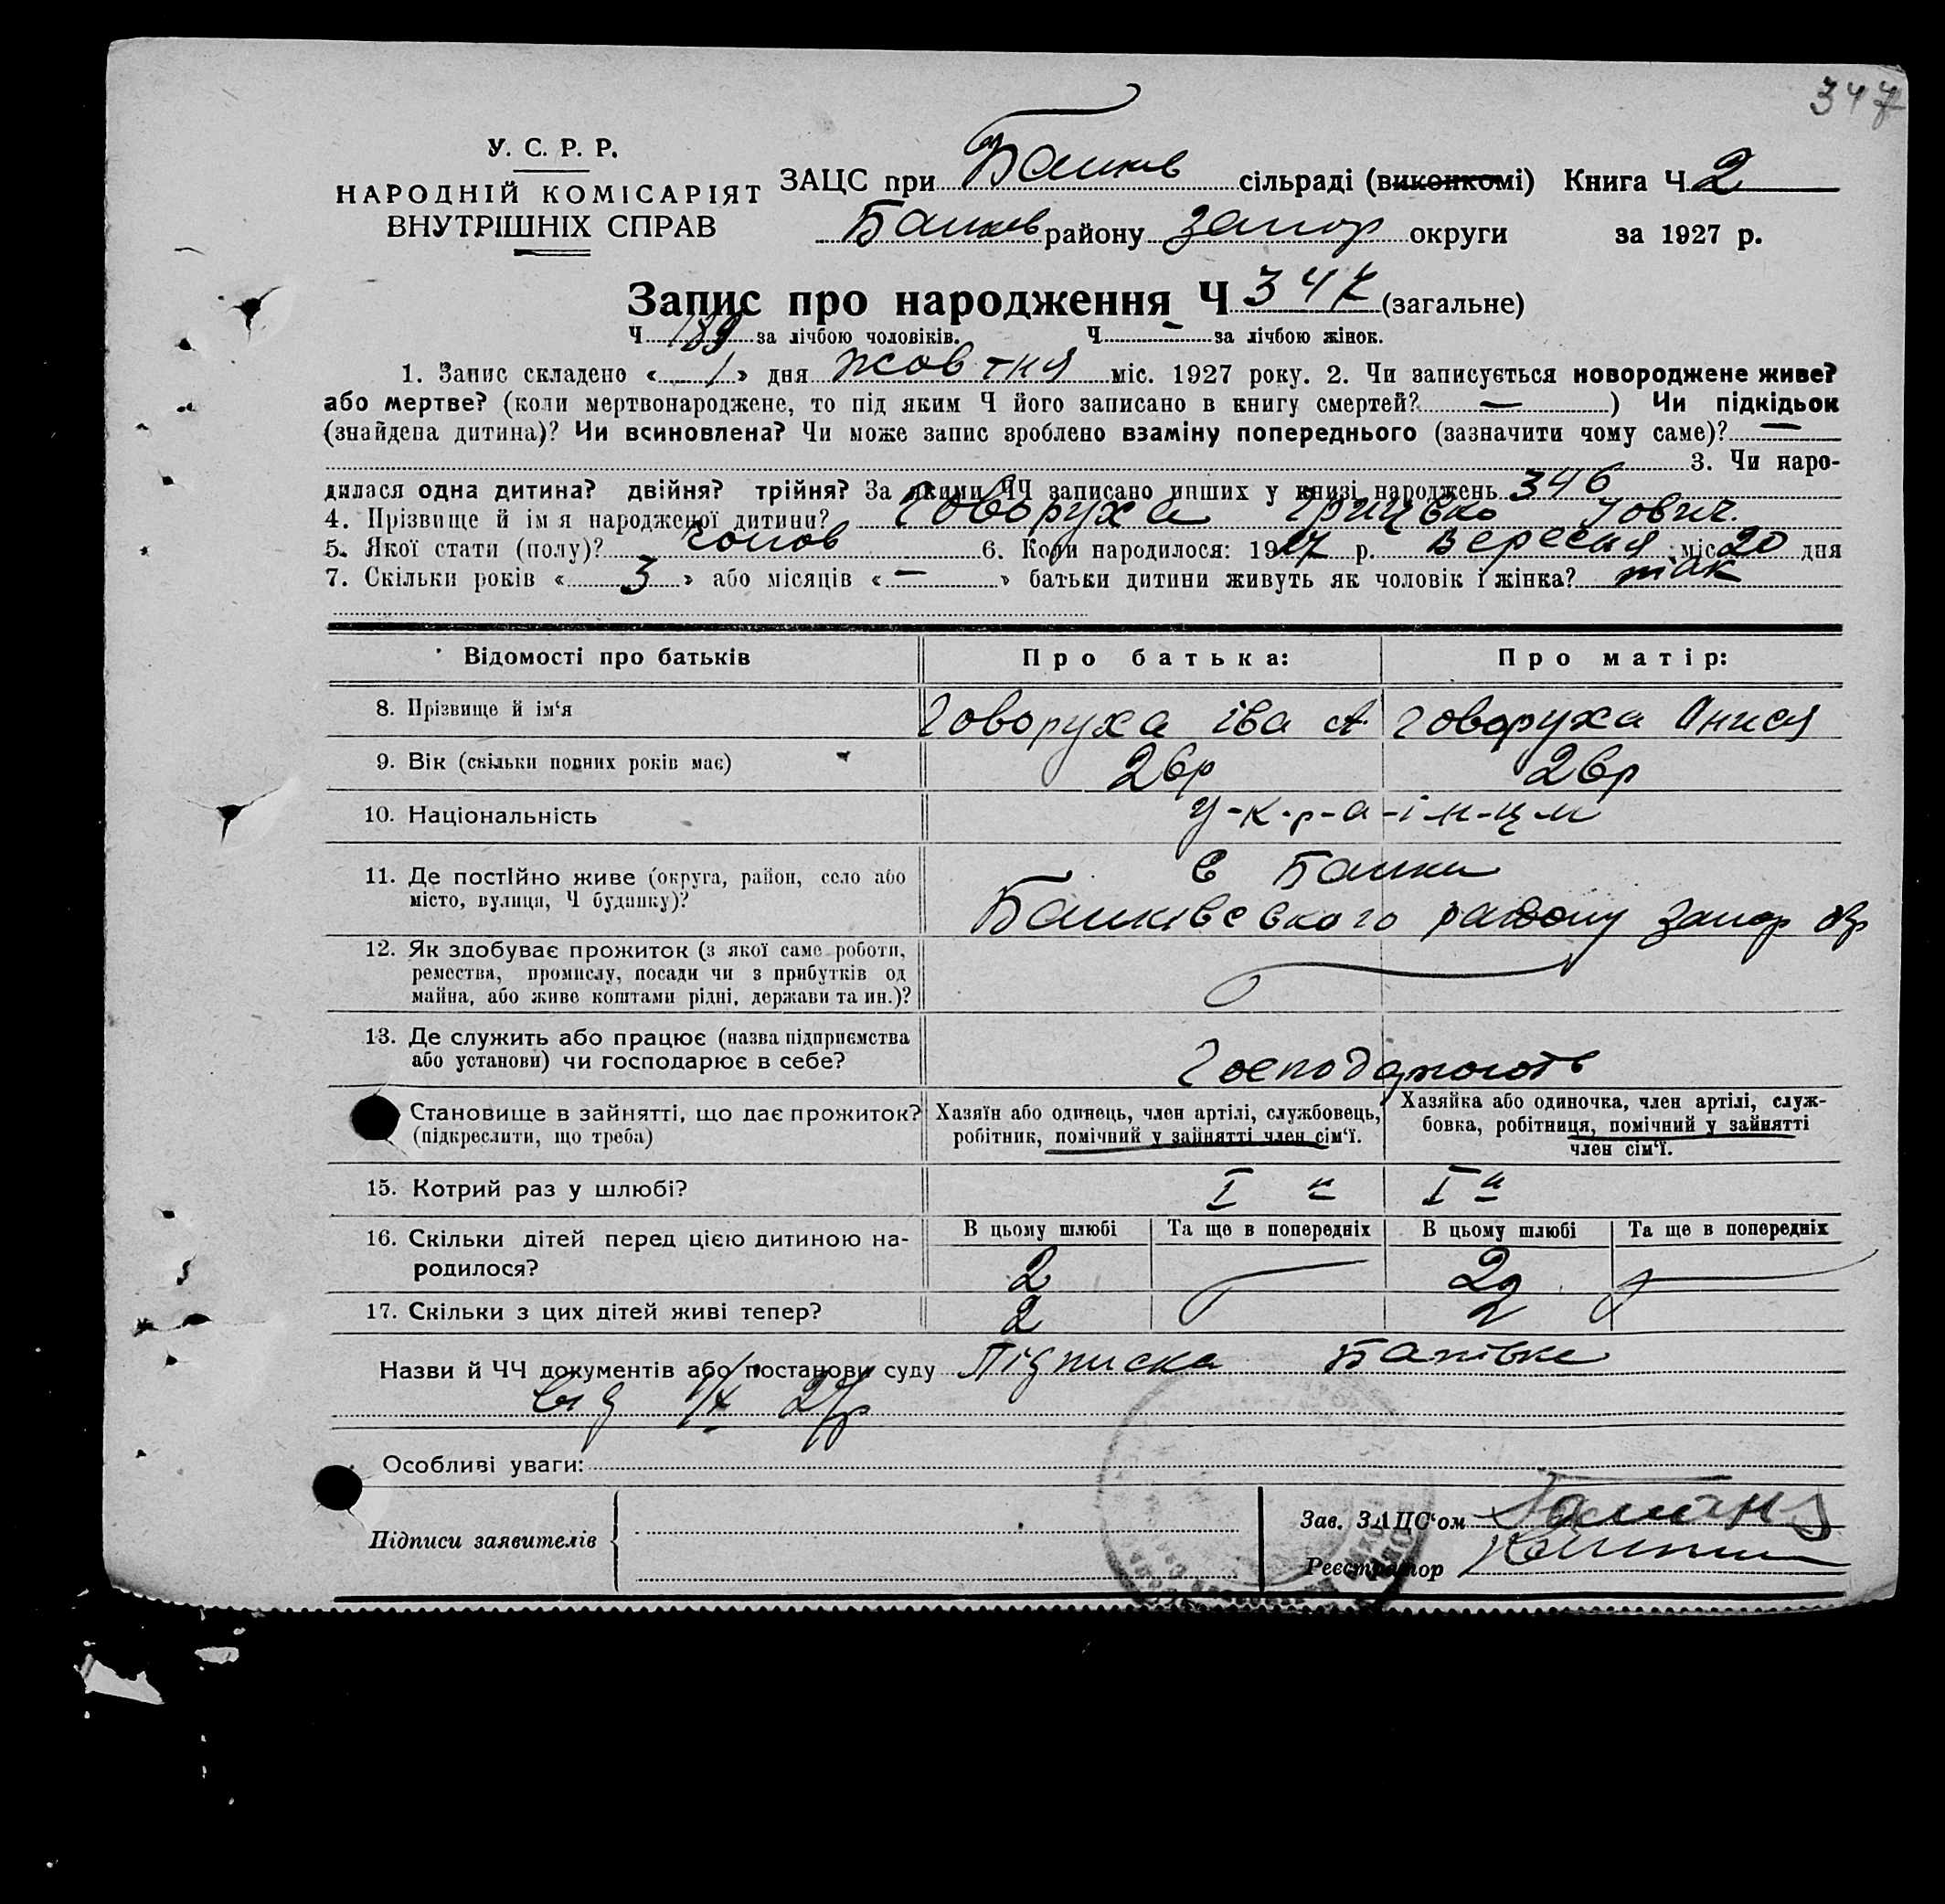 347
У. С. Р. Р.
НАРОДНІЙ КОМІСАРІЯТ
ВНУТРІШНІХ СПРАВ
ЗАЦС при Балків сільраді (виконкомі) Книга Ч 2
Балків району Запор округи за 1927 р.
Запис про народження Ч 347 (загальне)
Ч 189 за лічбою чоловіків. Ч — за лічбою жінок.
1. Запис складено « 1 » дня жовтня міс. 1927 року. 2. Чи записується новороджене живе?
або мертве? (коли мертвонароджене, то під яким Ч його записано в книгу смертей? — ) Чи підкідьок
(знайдена дитина)? Чи всиновлена? Чи може запис зроблено взаміну попереднього (зазначити чому саме)? —
3. Чи наро-
дилася одна дитина? двійня? трійня? За якими ЧЧ записано инших у книзі народжень 346
4. Прізвище й ім я народженої дитини? Говоруха Грицько
5. Якої стати (полу)? чолов 6. Коли народилося: 1927 р. Вересня міс 20 дня
7. Скільки років « 3 » або місяців « — » батьки дитини живуть як чоловік і жінка? так
Відомості про батьків Про батька: Про матір:
8. Прізвище й ім‘я Говоруха Іва А Говоруха Онися
9. Вік (скільки повних років має) 26р 26р
10. Національність у-к-р-а-ї-н-ц-и
11. Де постійно живе (округа, район, село або
місто, вулиця, Ч будинку)?
С Балки
Балківського району Запор окр
12. Як здобуває прожиток (з якої саме роботи,
ремества, промислу, посади чи з прибутків од
майна, або живе коштами рідні, держави та ин.)?
13. Де служить або працює (назва підприємства
або установи) чи господарює в себе?
Господарюють
Становище в зайнятті, що дає прожиток?
(підкреслити, що треба)
Хазяїн або одинець, член артілі, службовець,
робітник, помічний у зайнятті член сім‘ї.
Хазяйка або одиночка, член артілі, служ-
бовка, робітниця, помічний у зайнятті
член сім‘ї.
15. Котрий раз у шлюбі? I й I й
16. Скільки дітей перед цією дитиною на-
родилося?
В цьому шлюбі Та ще в попередніх В цьому шлюбі Та ще в попередніх
2 2
17. Скільки з цих дітей живі тепер? 2 2
Назви й ЧЧ документів або постанови суду Підписка
від 1/X 27р
Особливі уваги:
Підписи заявителів
Зав. ЗАЦС‘ом
Реєстратор